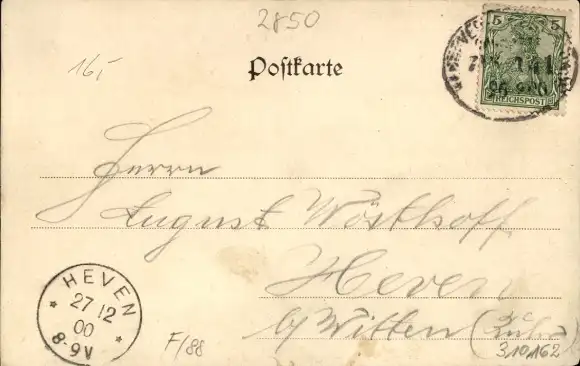 2850
16,-
Postkarte
5 5
REICHSPOST
Herrn
August Wösthoff
Heven
b/ Witten (Ruhr)
HEVEN
27 12
00
8-9V
F/88
310162